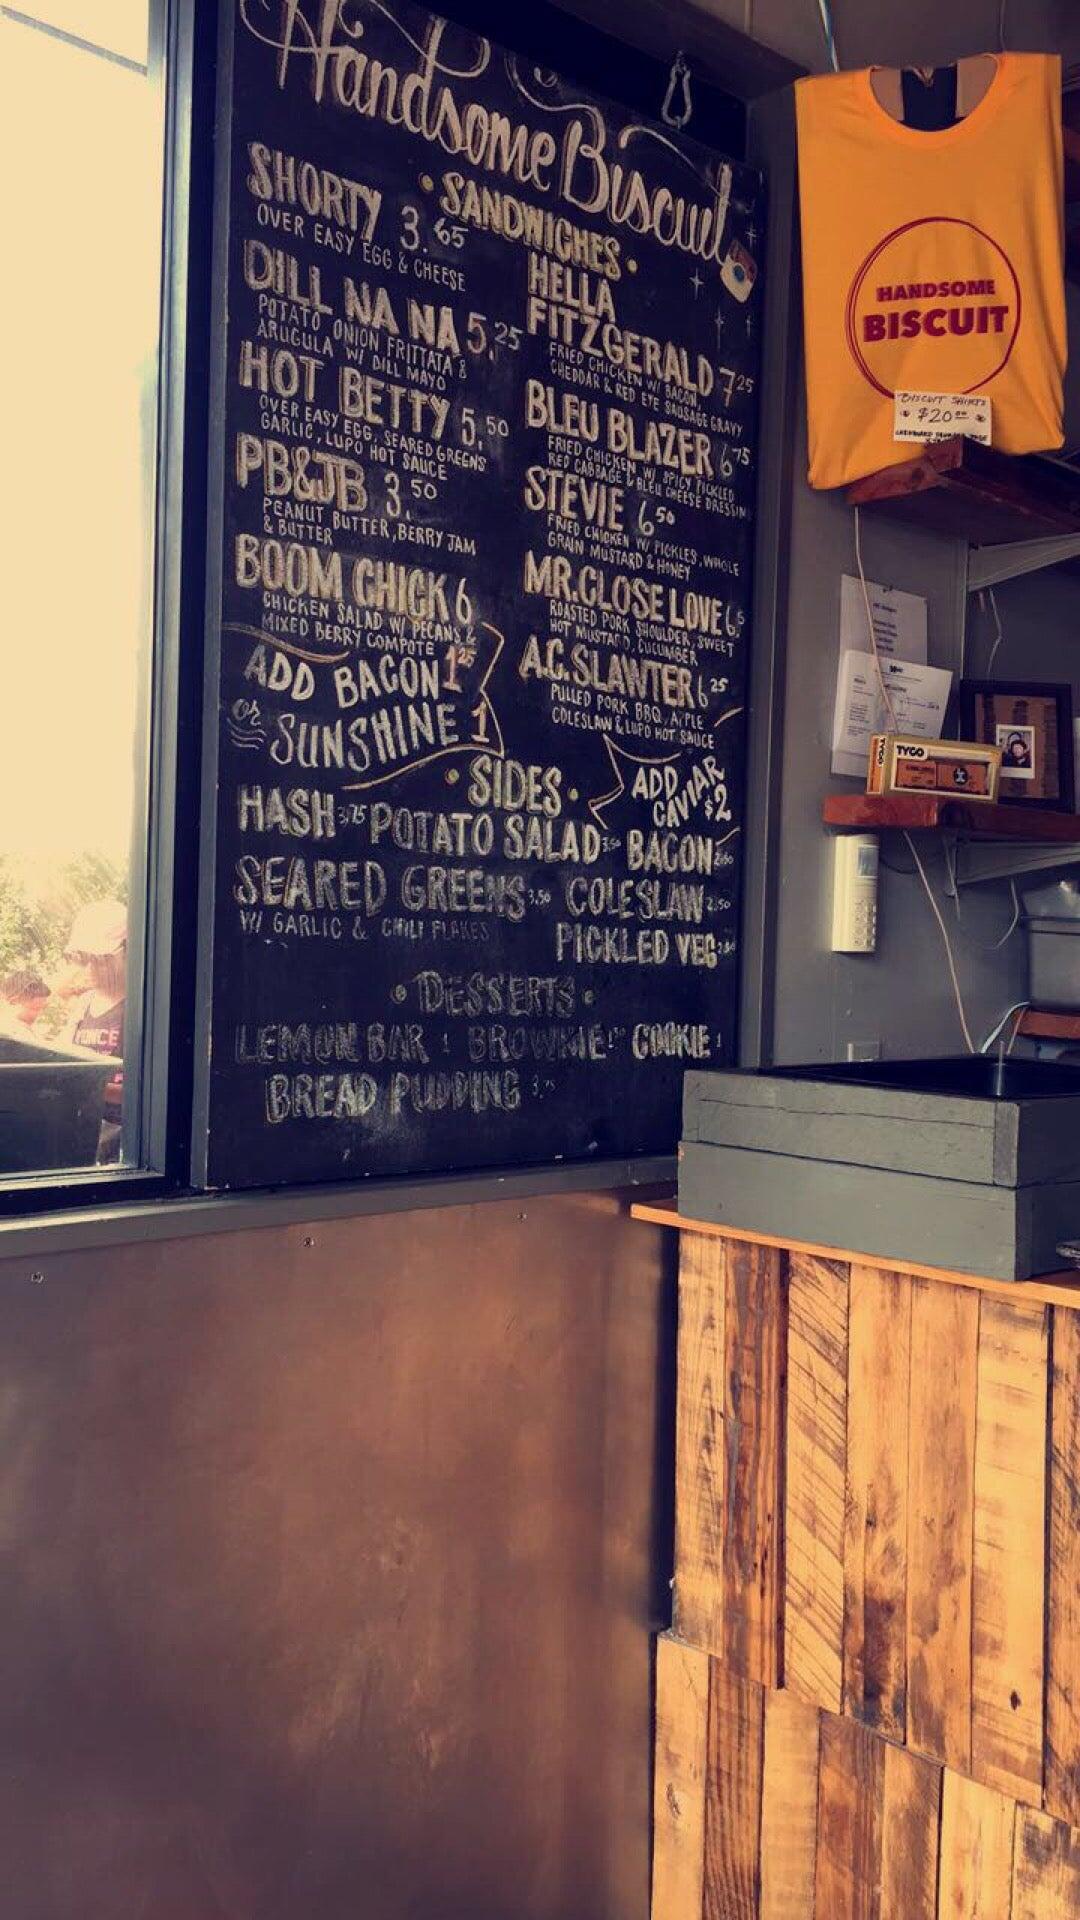 Handsome Biscuit
• SANDWICHES •
SHORTY 3.65
OVER EASY EGG & CHEESE
DILL NA NA 5.25
POTATO ONION FRITTATA &
ARUGULA W/ DILL MAYO
HOT BETTY 5.50
OVER EASY EGG, SEARED GREENS
GARLIC, LUPO HOT SAUCE
PB&JB 3.50
PEANUT BUTTER, BERRY JAM
& BUTTER
BOOM CHICK 6
CHICKEN SALAD W/ PECANS &
MIXED BERRY COMPOTE
ADD BACON 1.25
or SUNSHINE 1
HELLA
FITZGERALD 7.25
FRIED CHICKEN W/ BACON,
CHEDDAR & RED EYE SAUSAGE GRAVY
BLEU BLAZER 6.75
FRIED CHICKEN W/ SPICY PICKLED
RED CABBAGE & BLEU CHEESE DRESSIN
STEVIE 6.50
FRIED CHICKEN W/ PICKLES, WHOLE
GRAIN MUSTARD & HONEY
MR. CLOSE LOVE 6.5
ROASTED PORK SHOULDER, SWEET
HOT MUSTARD, CUCUMBER
A.C. SLAWTER 6.25
PULLED PORK BBQ, APPLE
COLESLAW & LUPO HOT SAUCE
ADD
CAVIAR
$2
• SIDES •
HASH 3.75 POTATO SALAD 3.50 BACON 2.50
SEARED GREENS 3.50 COLESLAW 2.50
W/ GARLIC & CHILI FLAKES
PICKLED VEG
• DESSERTS •
LEMON BAR BROWNIE COOKIE 1
BREAD PUDDING 3.75
HANDSOME
BISCUIT
BISCUIT SHIRTS
$20.00
TYCO
TYCO